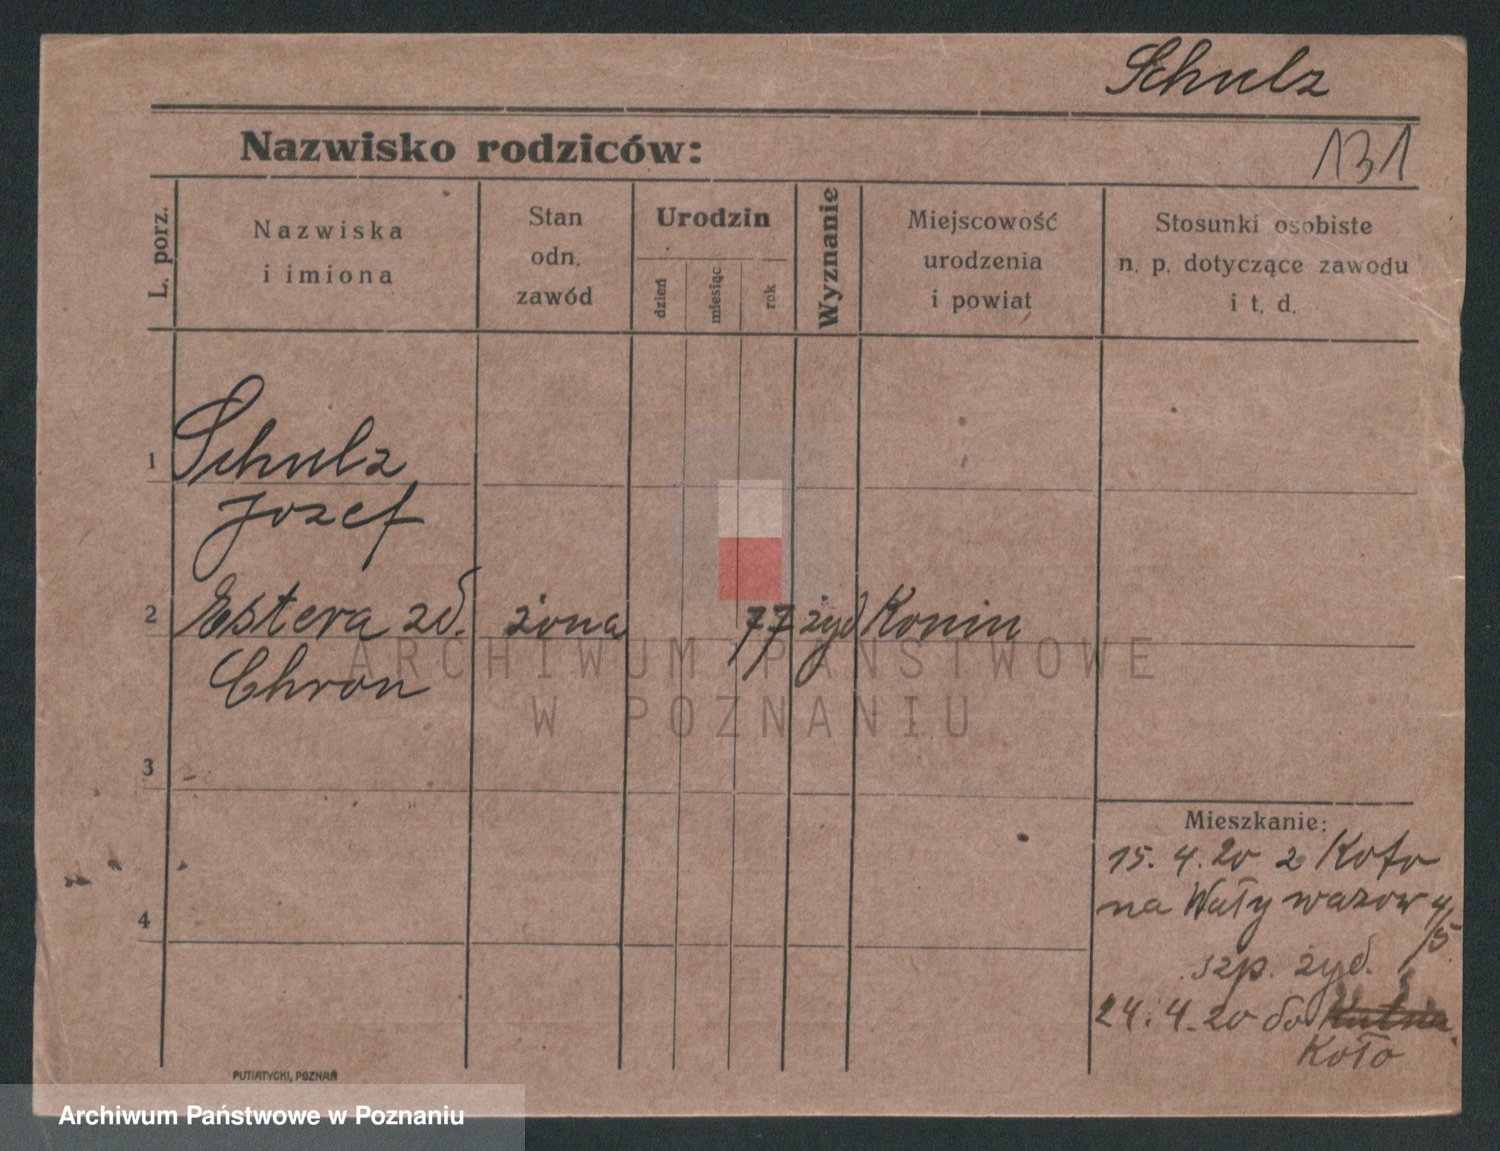 Schulz
Nazwisko rodziców:
131
L. porz.
Nazwiska
i imiona
Stan
odn.
zawód
Urodzin
dzień
miesiąc
rok
Wyznanie
Miejscowość
urodzenia
i powiat
Stosunki osobiste
n. p. dotyczące zawodu
i t. d.
1 Schulz
Jozef
2 Estera zd. żona 77 żyd Konin
Chron
3
4
Mieszkanie:
15. 4. 20 z Koło
na Wały wazow 4/5
szp. żyd.
24. 4. 20 do
Koło
PUTIATYCKI, POZNAŃ
ARCHIWUM PAŃSTWOWE
W POZNANIU
Archiwum Państwowe w Poznaniu